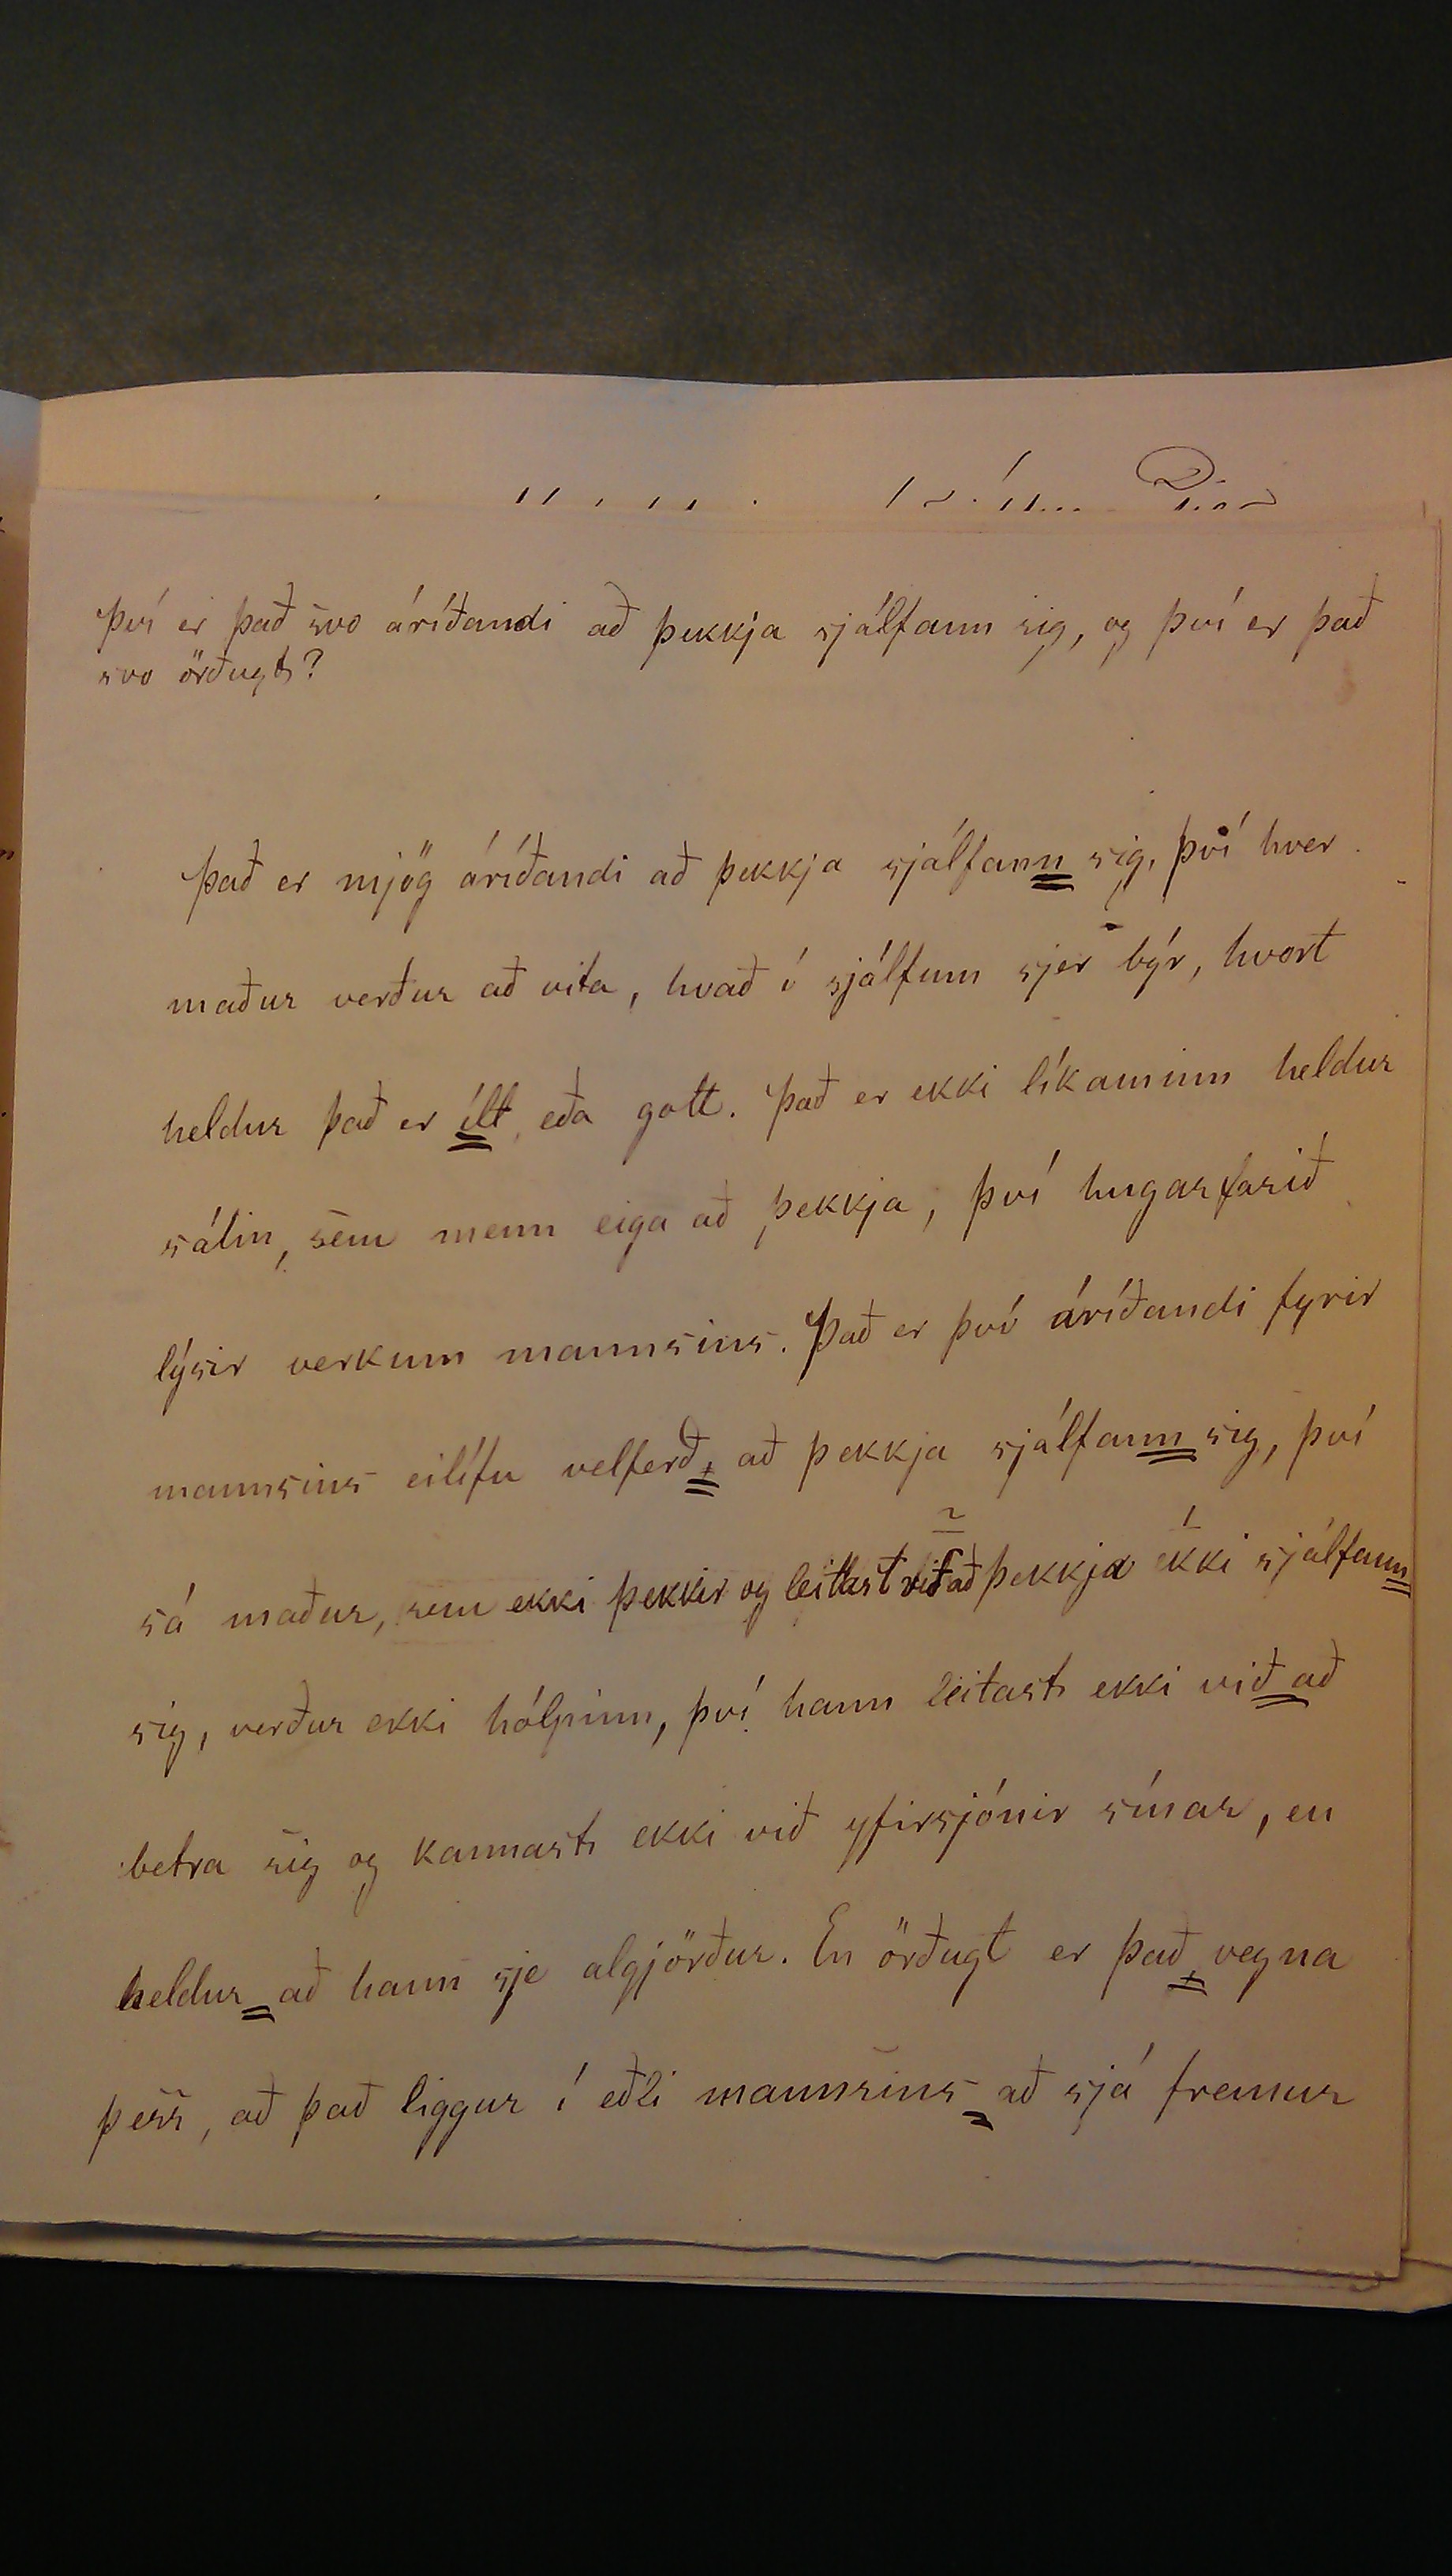 Því er það svo áríðandi að þekkja sjálfann sig, og því er það
svo örðugt?
Það er mjög áríðandi að þekkja sjálfann sig, því hver
maður verður að vita, hvað í sjálfum sjer býr, hvort
heldur það er illt, eða gott. Það er ekki líkaminn heldur
sálin, sem menn eiga að þekkja, því hugarfarið
lýsir verkum mannsins. Það er því áríðandi fyrir
mannsins eilífu velferð, að þekkja sjálfann sig, því
2 1
sá maður, sem ekki þekkir og leitast við að þekkja ekki sjálfann
sig, verður ekki hólpinn, því hann leitast ekki við að
betra sig og kannast ekki við yfirsjónir sínar, en
heldur að hann sje algjörður. En örðugt er það, vegna
þess, að það liggur í eðli mannsins að sjá fremur